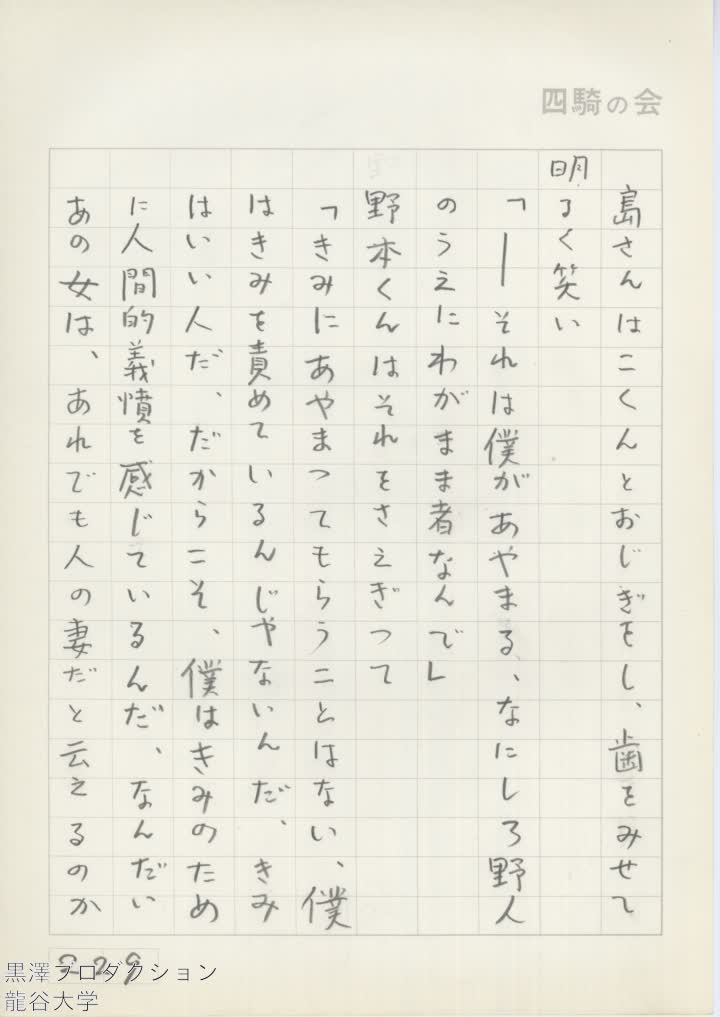 四騎の会
島さんはこくんとおじぎをし、歯をみせて
明るく笑い
「―それは僕があやまる、なにしろ野人
のうえにわがまま者なんで」
野本くんはそれをさえぎって
「きみにあやまってもらうことはない、僕
はきみを責めているんじゃないんだ、きみ
はいい人だ、だからこそ、僕はきみのため
に人間的義憤を感じているんだ、なんだい
あの女は、あれでも人の妻だと云えるのか
229
黒澤プロダクション
龍谷大学